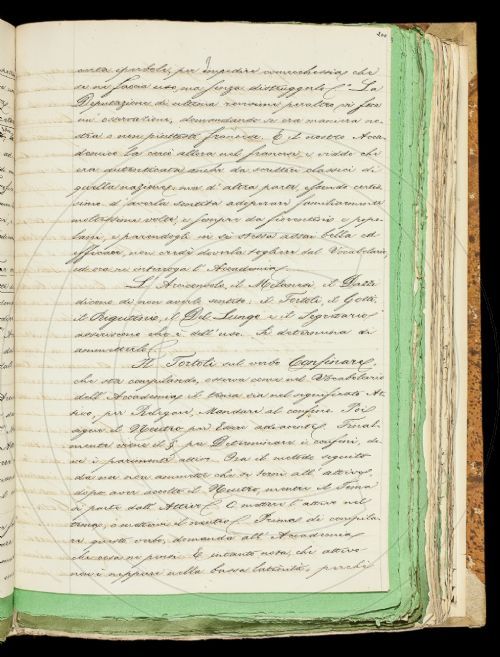 200
certa iperbole, per impedire comecchessia che
se ne faccia uso, ma senza distruggerlo. La
Deputazione di ultima revisione peraltro, vi fece
un' osservazione, domandando se era maniera no-
stra o non piuttosto francese. E il nostro Acca-
demico la cercò allora nel francese, e vidde ch'
era autenticata anche da scrittori classici di
quella nazione: ma d'altra parte, essendo certis-
simo d'averla sentita adoperare familiarmente
moltissime volte, e sempre da fiorentini e popo-
lani, e parendogli in sé stessa assai bella ed
efficace, non credè doverla togliere dal Vocabolario,
ed ora ne interroga l'Accademia.
L'Arciconsolo, il Milanesi, il Dazzi
dicono di non averla sentita: il Tortoli, il Gotti,
il Rigutini, il Del Lungo e il Segretario
asseriscono che è dell'uso. Si determina di
ammetterla.
Il Tortoli sul verbo Confinare,
che sta compilando, osserva come nel Vocabolario
dell'Accademia il tema era nel significato At-
tivo, per Relegare, Mandare al confine. Poi
segue il Neutro per Essere adiacente. Final-
mente viene il § per Determinare i confini, do-
v' è parimente attivo. Ora il metodo seguito
da noi non ammette che si torni all'attivo,
dopo aver accolto il Neutro, mentre il Tema
si partì dall'Attivo. O mettere l'attivo nel
tema, o mettervi il neutro. Prima di compila-
re questo verbo, domanda all'Accademia
che cosa ne pensi. E intanto nota, che attivo
non è neppure nella bassa latinità, perchè